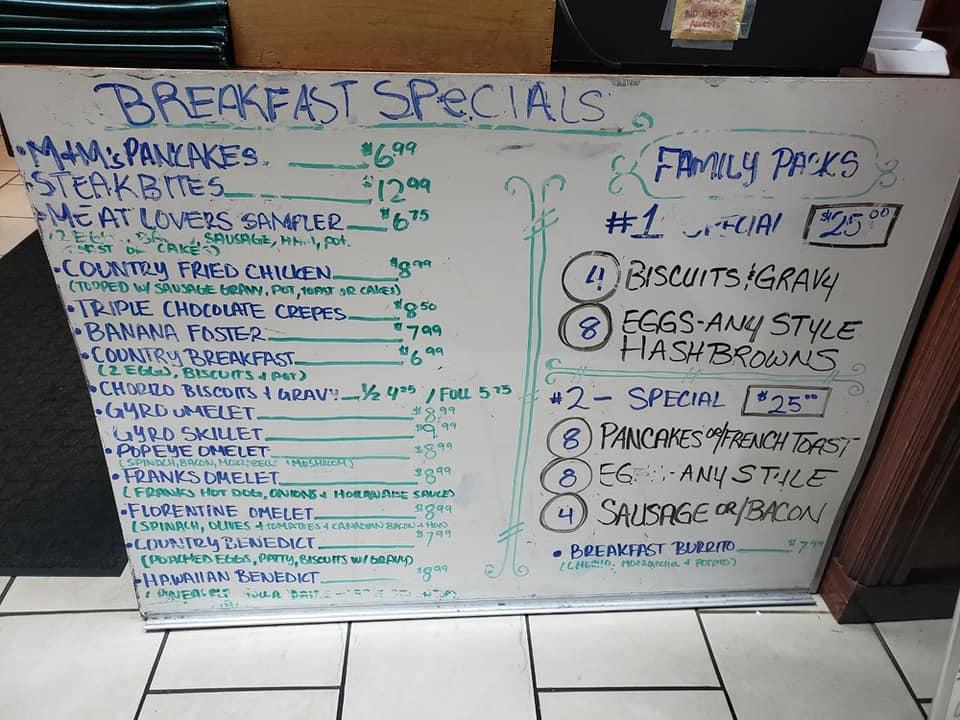 NO CHECKS
ACCEPTED
BREAKFAST SPECIALS
• M&M's PANCAKES $6.99
• STEAK BITES $12.99
• MEAT LOVERS SAMPLER $6.75
(2 EGGS, SAUSAGE, POT,
OR CAKES)
• COUNTRY FRIED CHICKEN $8.99
(TOPPED W/ SAUSAGE GRAVY, POT, TOAST OR CAKES)
• TRIPLE CHOCOLATE CREPES $8.50
• BANANA FOSTER $7.99
• COUNTRY BREAKFAST $6.99
(2 EGGS, BISCUITS + POT)
• CHORIZO BISCUITS & GRAVY 1/2 4.25 / FULL 5.75
• GYRO OMELET $8.99
GYRO SKILLET $9.99
• POPEYE OMELET $8.99
(SPINACH, BACON, MOZZARELLA + MUSHROOM)
• FRANKS OMELET $8.99
(FRANKS HOT DOG, ONIONS & HOLLANDAISE SAUCE)
• FLORENTINE OMELET $8.99
(SPINACH, OLIVES + TOMATOES + CANADIAN BACON
• COUNTRY BENEDICT $7.99
(POACHED EGGS, PATTY, BISCUITS W/ GRAVY)
• HAWAIIAN BENEDICT $8.99
(PINEAPPLE
FAMILY PACKS
#1 SPECIAL $25.00
4 BISCUITS & GRAVY
8 EGGS-ANY STYLE
HASHBROWNS
#2 - SPECIAL $25.00
8 PANCAKES OR/FRENCH TOAST
8 EGGS-ANY STYLE
4 SAUSAGE OR/BACON
• BREAKFAST BURRITO $7.99
(CHORIZO, MOZZARELLA & POTATO)